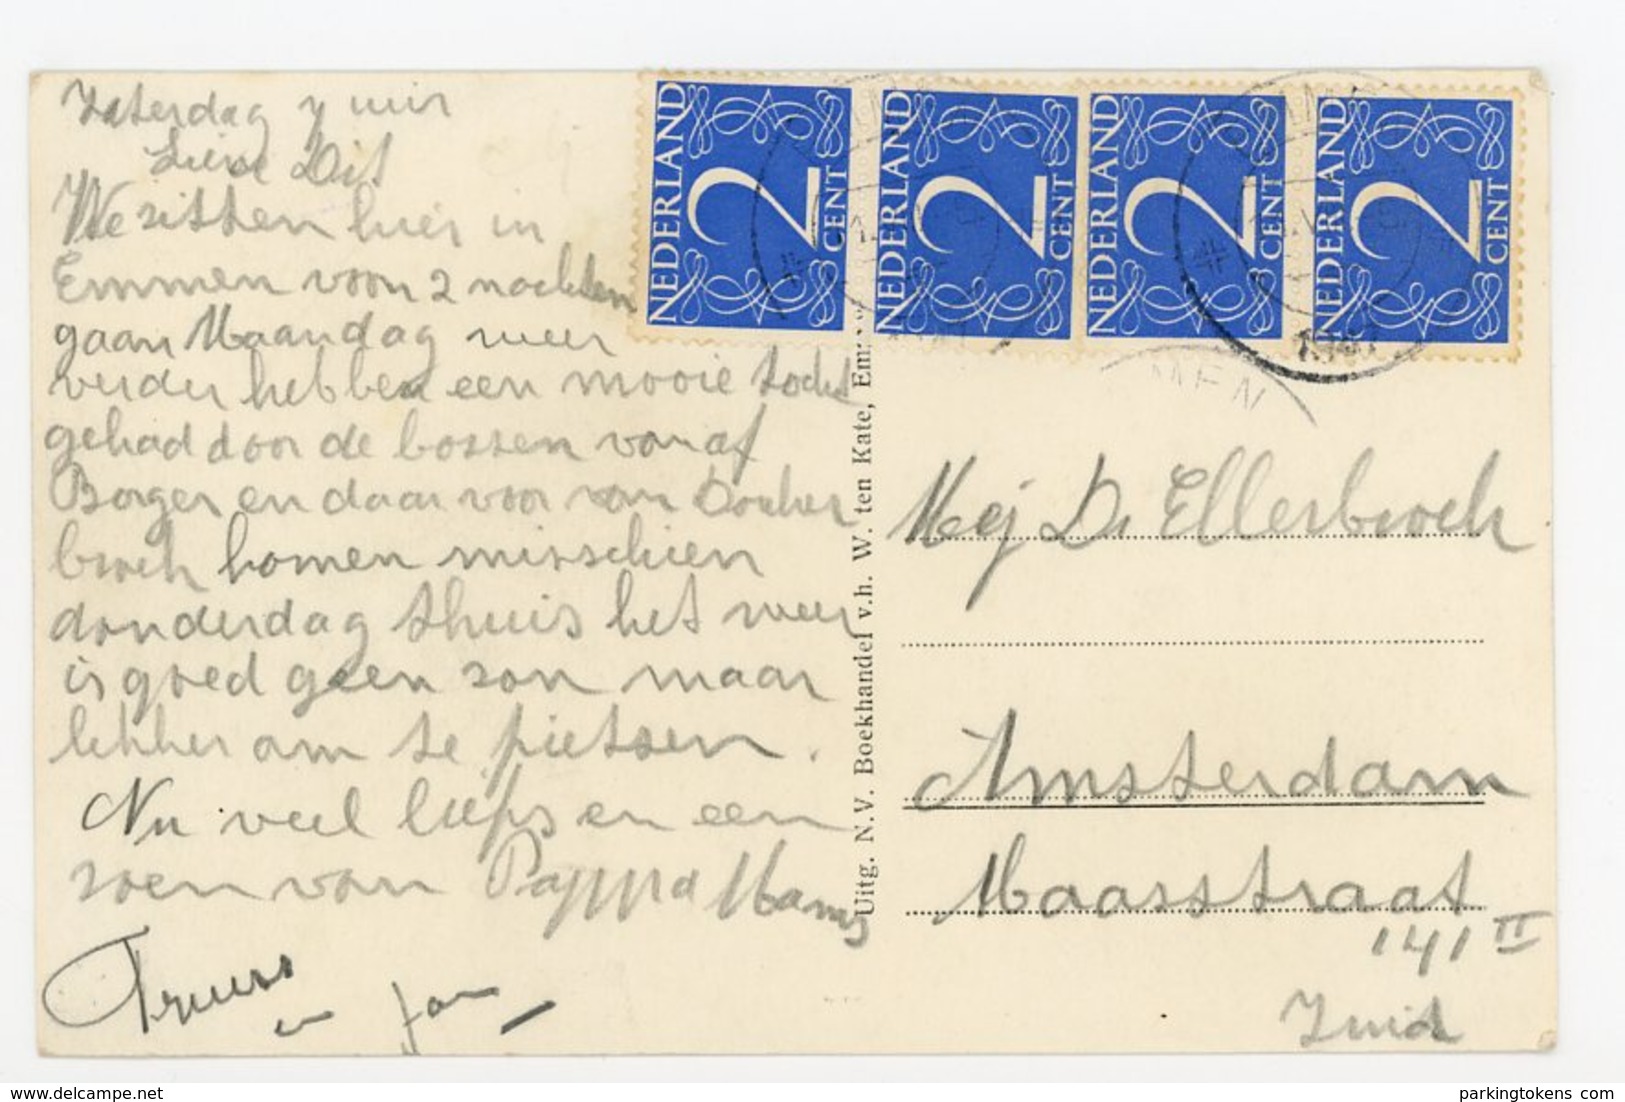 Zaterdag 7 uur
Lieve Dit
We zitten hier in
Emmen voor 2 nachten
gaan Maandag weer
verder hebben een mooie tocht
gehad door de bossen vanaf
Borger en daar voor van Donker
broek komen misschien
donderdag thuis het weer
is goed geen zon maar
lekker om te fietsen.
Nu veel liefs en een
zoen van Pappa Mamy
Truus
en Jan
NEDERLAND 2 CENT
NEDERLAND 2 CENT
NEDERLAND 2 CENT
NEDERLAND 2 CENT
1947
MEN
Uitg. N.V. Boekhandel v.h. W. ten Kate, Em
Mej D. Ellerbroek
Amsterdam
Maasstraat
141 II
Zuid
delcampe.net
parkingtokens.com